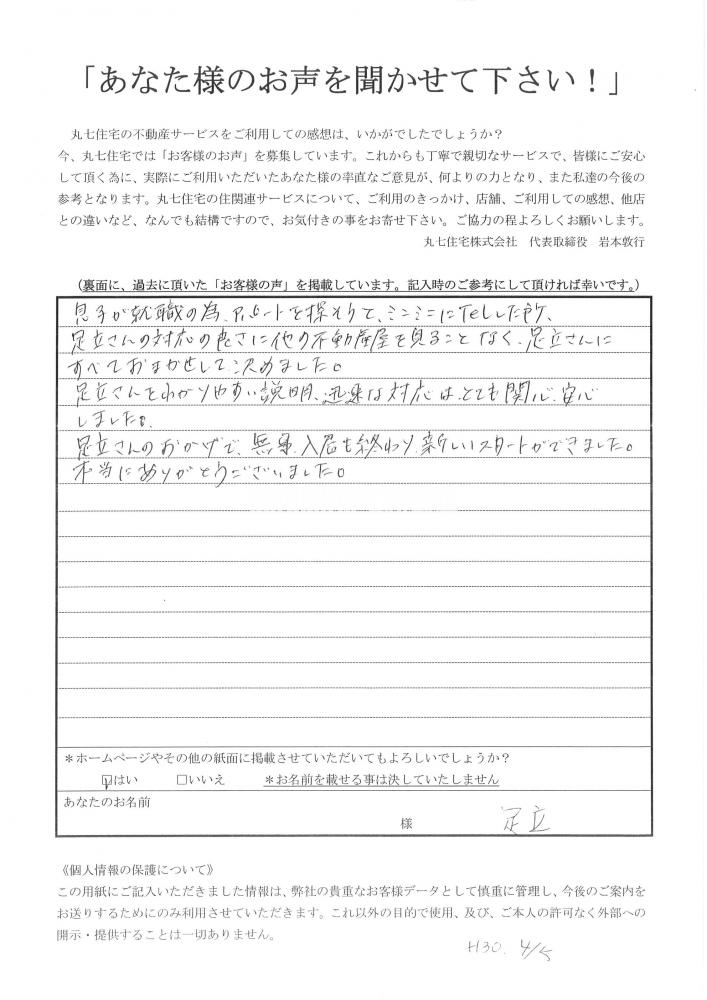 「あなた様のお声を聞かせて下さい！」
丸七住宅の不動産サービスをご利用しての感想は、いかがでしたでしょうか？
今、丸七住宅では「お客様のお声」を募集しています。これからも丁寧で親切なサービスで、皆様にご安心
して頂く為に、実際にご利用いただいたあなた様の率直なご意見が、何よりの力となり、また私達の今後の
参考となります。丸七住宅の住関連サービスについて、ご利用のきっかけ、店舗、ご利用しての感想、他店
との違いなど、なんでも結構ですので、お気付きの事をお寄せ下さい。ご協力の程よろしくお願いします。
丸七住宅株式会社　代表取締役　岩本敦行
（裏面に、過去に頂いた「お客様の声」を掲載しています。記入時のご参考にして頂ければ幸いです。）
息子が就職の為、アパートを探そうと、ミニミニにTelした所、
足立さんの対応の良さに他の不動産屋を見ることなく、足立さんに
すべておまかせして決めました。
足立さんもわかりやすい説明、迅速な対応は、とても関心、安心
しました。
足立さんのおかげで、無事、入居も終わり、新しいスタートができました。
本当にありがとうございました。
＊ホームページやその他の紙面に掲載させていただいてもよろしいでしょうか？
☑はい　□いいえ　＊お名前を載せる事は決していたしません
あなたのお名前
様　足立
《個人情報の保護について》
この用紙にご記入いただきました情報は、弊社の貴重なお客様データとして慎重に管理し、今後のご案内を
お送りするためにのみ利用させていただきます。これ以外の目的で使用、及び、ご本人の許可なく外部への
開示・提供することは一切ありません。
H30. 4/5